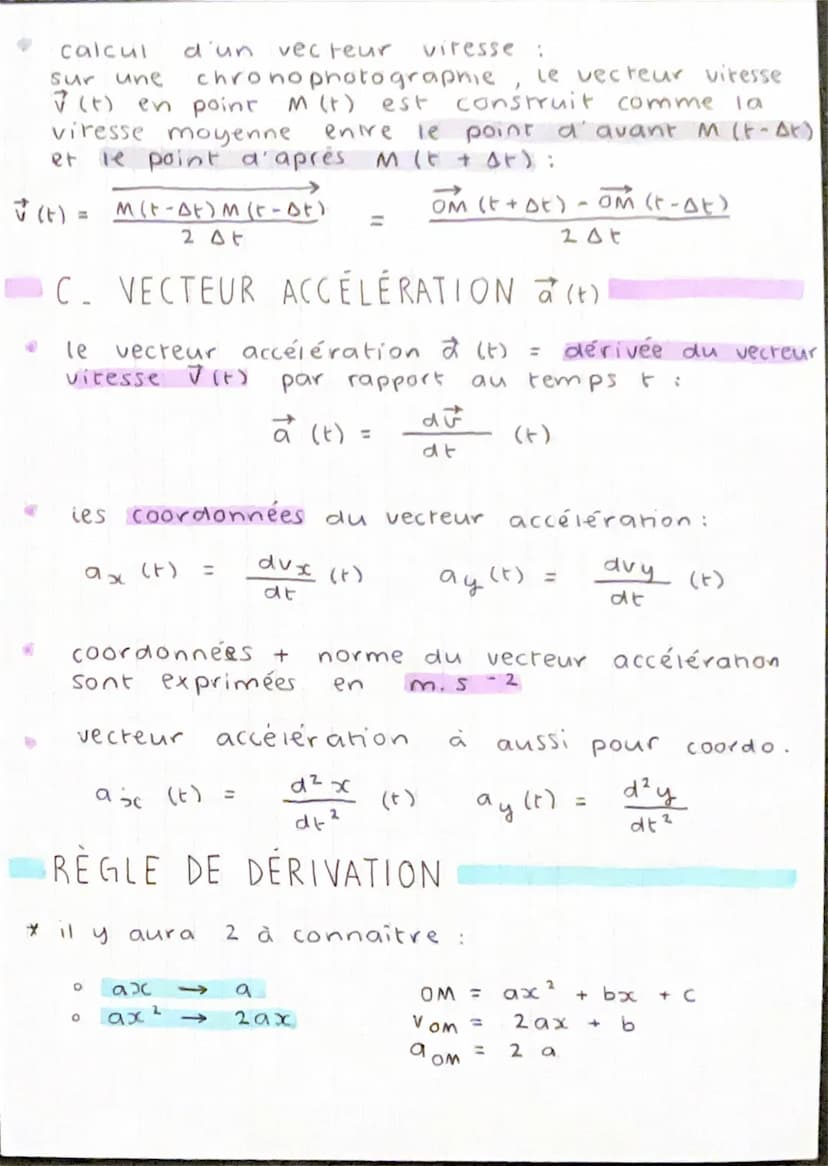 calcul d'un vecteur vitesse :
sur une chronophotographie, le vecteur vitesse
v⃗ (t) en point M (t) est construit comme la
vitesse moyenne entre le point d'avant M (t - Δt)
et le point d'après M (t + Δt) :
v⃗ (t) = M(t-Δt) M (t-Δt) / 2 Δt = OM⃗ (t + Δt) - OM⃗ (t-Δt) / 2 Δt
C - VECTEUR ACCÉLÉRATION a⃗ (t)
le vecteur accélération a⃗ (t) = dérivée du vecteur
vitesse v⃗ (t) par rapport au temps t :
a⃗ (t) = dv⃗ / dt (t)
les coordonnées du vecteur accélération :
ax (t) = dvx / dt (t) ay (t) = dvy / dt (t)
coordonnées + norme du vecteur accélération
sont exprimées en m.s⁻²
vecteur accélération à aussi pour coordo.
ax (t) = d²x / dt² (t) ay (t) = d²y / dt²
RÈGLE DE DÉRIVATION
* il y aura 2 à connaître :
○ ax → a OM = ax² + bx + c
○ ax² → 2ax VOM = 2ax + b
aOM = 2 a